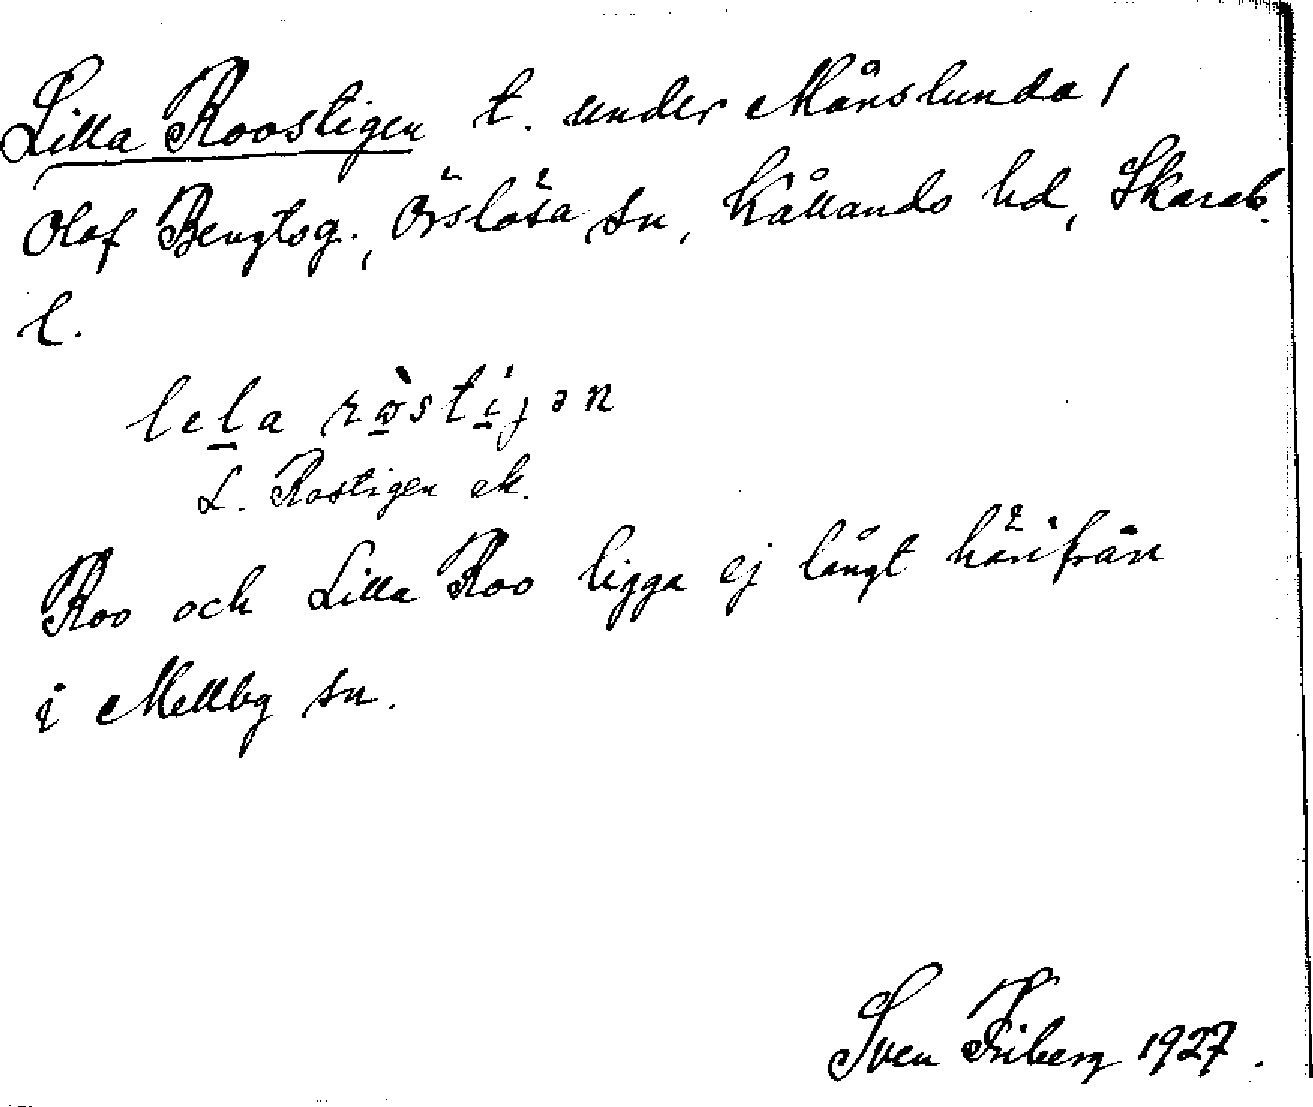 Lilla Roostigen t. under Månslunda 1
Olof Bengtsg., Örslösa sn, Kållands hd, Skarab.
l.
lela ròstigən
L. Rostigen ek.
Roo och Lilla Roo ligga ej långt härifrån
i Mellby sn.
Sven Friberg 1927.